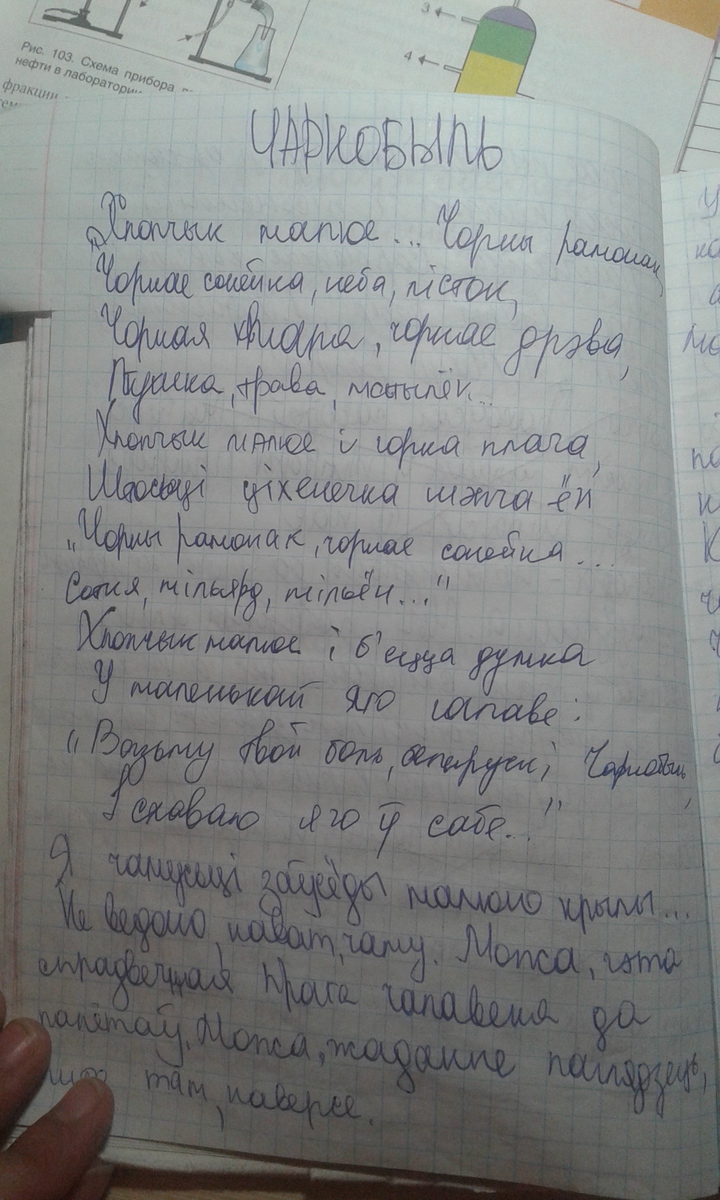 3
4
Рис. 103. Схема прибора
нефти в лаборатории
фракции
ЧАРНОБЫЛЬ
„Хлопчык малюе... Чорны рамонак,
Чорнае сонейка, неба, лісток,
Чорная хмара, чорнае дрэва,
Птушка, трава, матылёк...
Хлопчык малюе і горка плача,
Штосьці ціхенечка шэпча ён
„Чорны рамонак, чорнае сонейка...
Сотня, мільярд, мільён..."
Хлопчык малюе і б'ецца думка
У маленькай яго галаве:
„Вазьму твой боль, беларускі Чарнобыль,
І схаваю яго ў сабе..."
Я чамусьці заўсёды малюю крылы...
Не ведаю, нават, чаму. Можа, гэта
спрадвечная прага чалавека да
палётаў. Можа, жаданне паглядзець,
што там, наверсе.